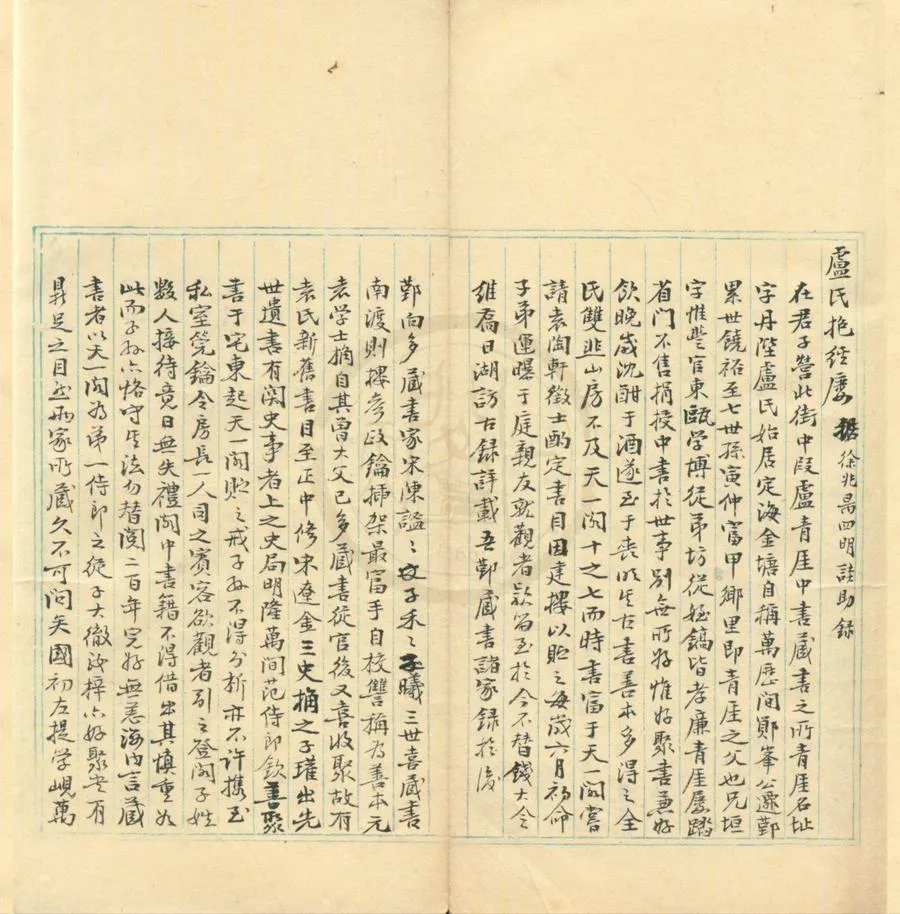 盧氏抱經廔 據徐兆昺四明誼助錄
在君子營此街中段盧青厓中書藏書之所青厓名址
字丹陛盧氏始居定海金塘自稱萬歷間鄮峯公遷鄞
累世饒裕至七世孫寅仲富甲鄉里即青厓之父也兄垣
字惟墊官東甌学博從弟坊從姪鎬皆孝廉青厓屢踏
省門不售捐授中書於世事別無所好惟好聚書兼好
飲晚歲沈酣于酒遂至于喪明生古書善本多得之全
氏雙韭山房不及天一閣十之七而時書富于天一閣嘗
請袁陶軒徵士酌定書目因建樓以貯之每歲六月初命
子弟運曝于庭親友就觀者款留至於今不替錢大令
維喬日湖訪古録詳載吾鄞藏書諸家録於後
鄞向多藏書家宋陳謐之文子禾之子曦三世喜藏書
南渡則樓參政鑰插架最富手自校讐稱為善本元
袁学士桷自其曾大父已多藏書從官後又喜收聚故有
袁氏新舊書目至正中修宋遼金三史桷之子瓘出先
世遺書有関史事者上之史局明隆萬間范侍郎欽善聚
書于宅東起天一閣貯之戒子孫不得分析亦不許攜至
私室筦鑰令房長一人司之賓客欲觀者引之登閣子姓
數人接待竟日無失禮閣中書籍不得借出其慎重如
此而子孫亦恪守其法勿替閱二百年完好無恙海内言藏
書者以天一閣為第一侍郎之從子大徹汝梓亦好聚書有
鼎足之目然兩家所藏久不可問矣國初左提学峴萬